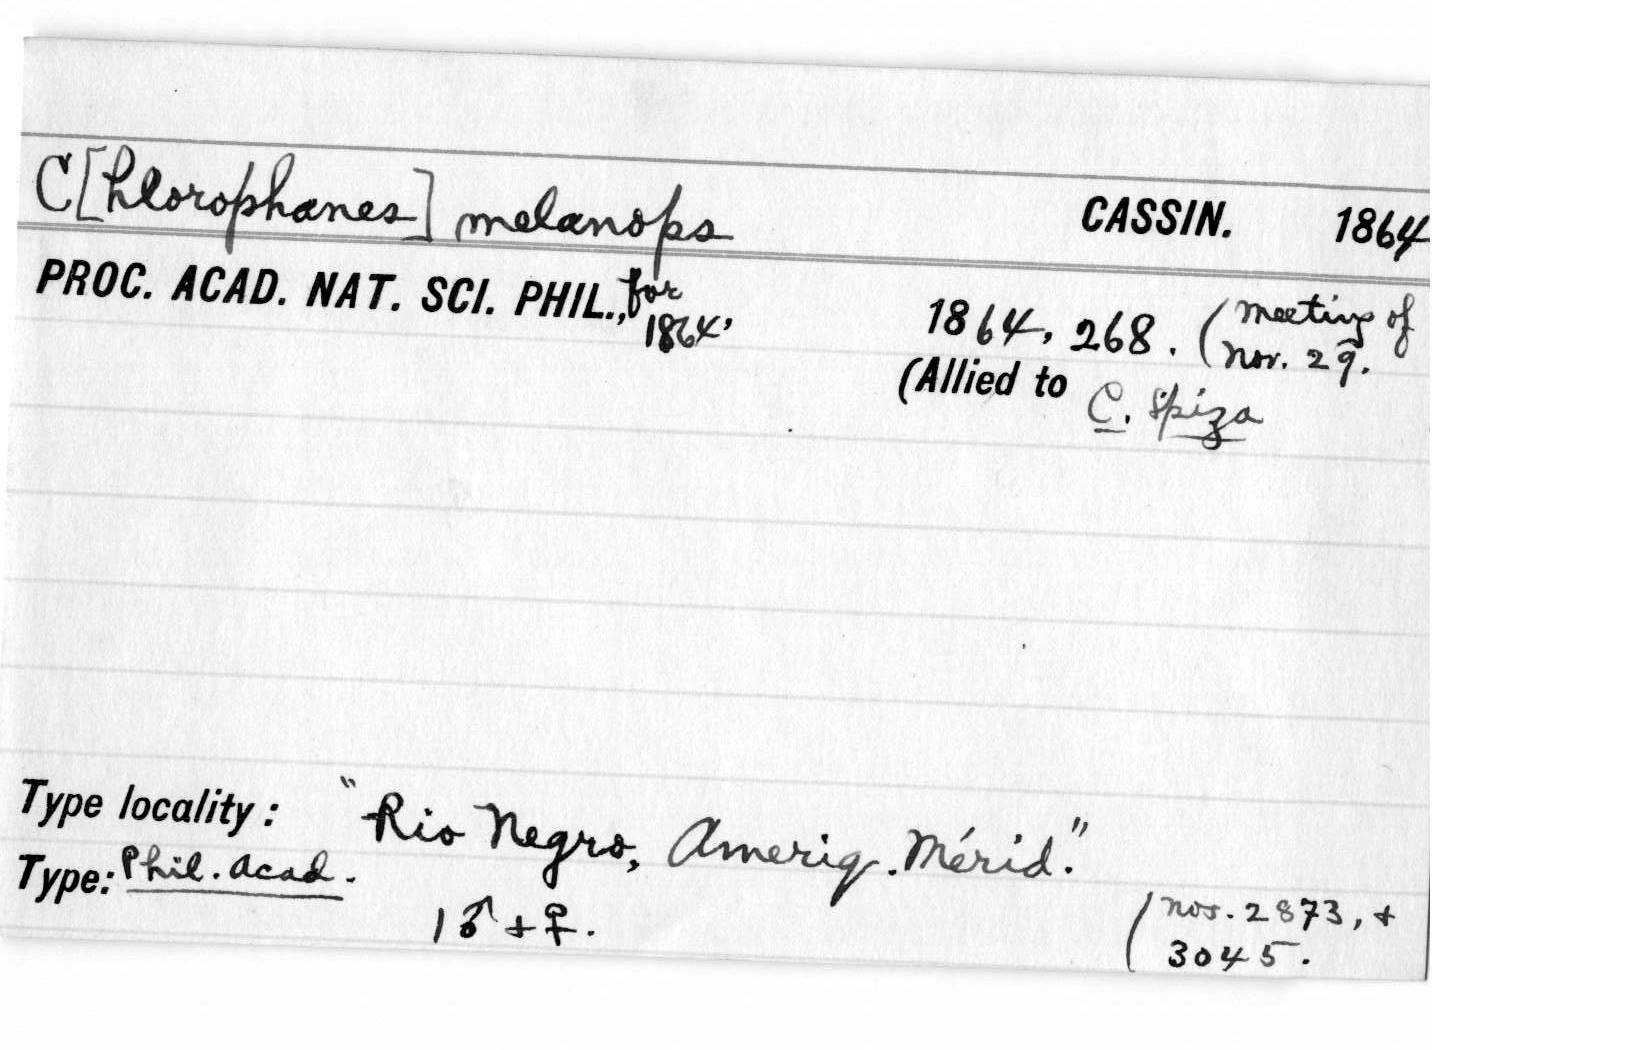 C[hlorophanes] melanops CASSIN. 1864
PROC. ACAD. NAT. SCI. PHIL., for 1864, 1864, 268. (Meeting of Nov. 29.
(Allied to C. spiza
Type locality: "Rio Negro, Ameriq. Mérid."
Type: Phil. Acad.
1 ♂ + ♀.
(nos. 2873, +
3045.